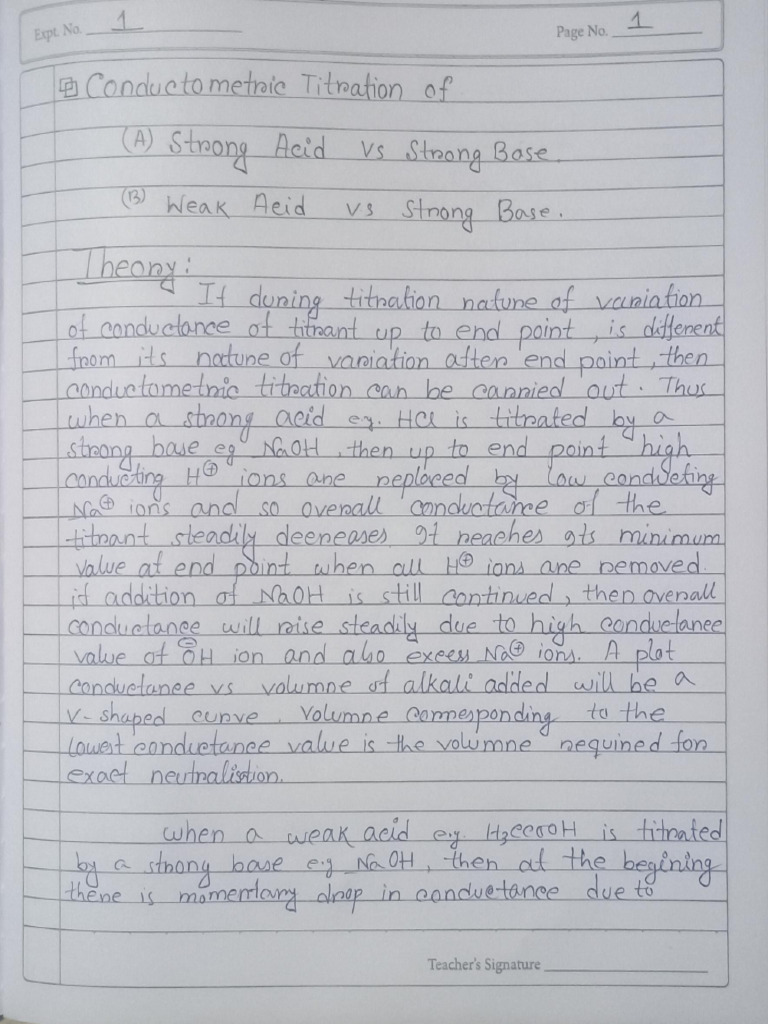 Expt. No. 1
Page No. 1
Conductometric Titration of
(A) Strong Acid vs Strong Base.
(B) Weak Acid vs Strong Base.
Theory:
If during titration nature of variation
of conductance of titrant up to end point, is different
from its nature of variation after end point, then
conductometric titration can be carried out. Thus
when a strong acid eg. HCl is titrated by a
strong base eg NaOH, then up to end point high
conducting H⊕ ions are replaced by low conducting
Na⊕ ions and so overall conductance of the
titrant steadily decreases. It reaches its minimum
value at end point when all H⊕ ions are removed.
if addition of NaOH is still continued, then overall
conductance will raise steadily due to high conductance
value of ⊖OH ion and also excess Na⊕ ions. A plot
conductance vs volumne of alkali added will be a
V-shaped curve. Volumne corresponding to the
lowest conductance value is the volumne required for
exact neutralistion.
when a weak acid e.g. H3CCOOH is titrated
by a strong base e.g NaOH, then at the begining
there is momentary drop in conductance due to
Teacher's Signature